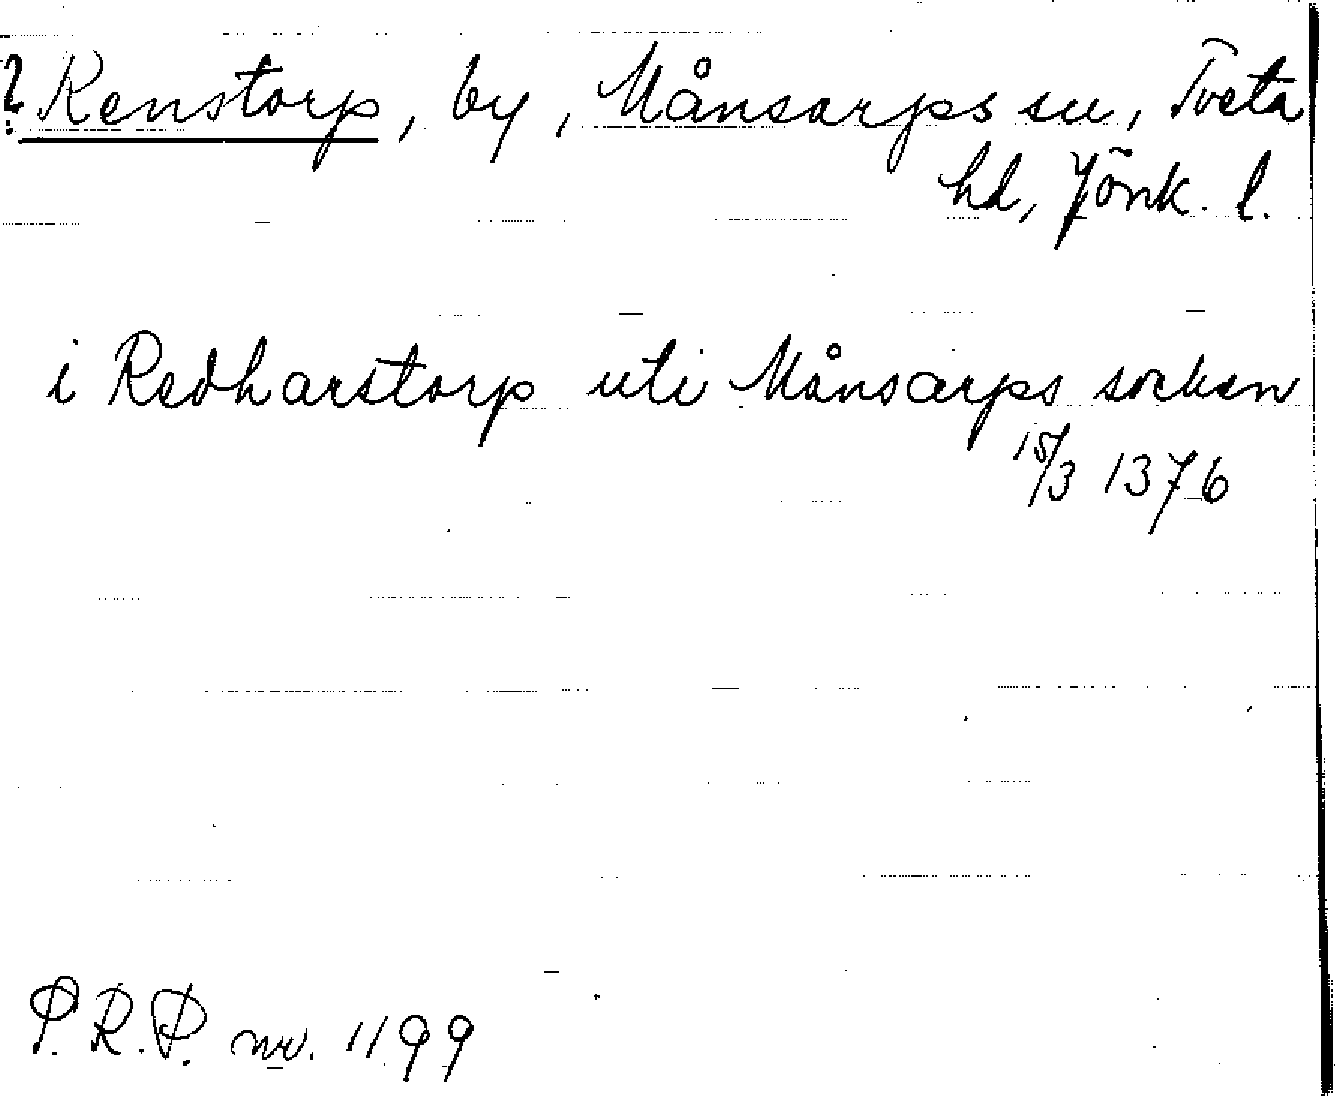 ? Renstorp, by, Månsarps sn, Tveta
hd, Jönk. l.
i Redharstorp uti Månsarps socken
15/3 1376
P.R.P. nr. 1199